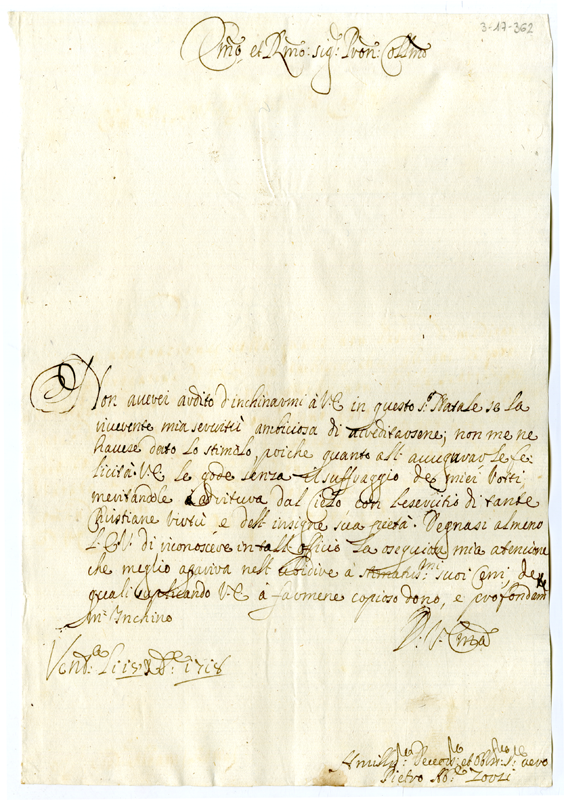 3-17-362
Em̃o et Rm̃o: Sig.r Pron: Coll̃mo
Non averei ardito d'inchinarmi à V.E. in questo S.o Natale se la
riverente mia servitù ambiciosa di acreditarsene; non me ne
havese dato lo stimolo, poiche quanto all' augurarle fe,,
licità V.E. le gode senza il suffraggio de miei Votti,
meritandole adritura dal Cielo con l'esercitio di tante
Christiane virtù e dell' insigne sua pietà. Degnasi almeno
l'E.V. di riconoscere in tall officio la osequiosa mia atencione
che meglio aparirà nell' obidire à stimatis.mi suoi Cenni, de
quali suplicando V.E. à farmene copioso dono, e profondam.te
m' Inchino
D: V: Em̃a
Li 15 X.bre 1718
Humiliss.o: Devot.o: et Oblig.o S.r: vero
Pietro